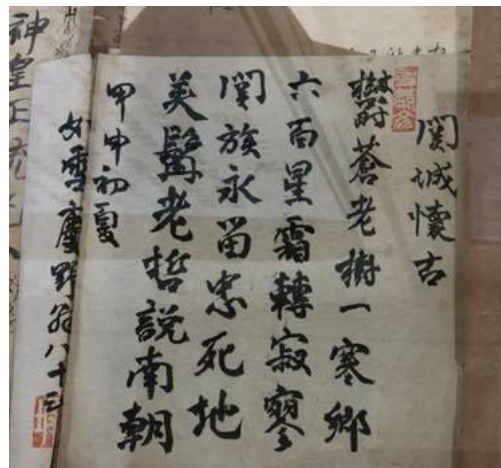 関城懷古
欝蒼老樹一寒郷
六百星霜轉寂寥
関族永留忠死地
美髯老哲説南朝
甲申初夏
如雪野翁八十三
神皇正統